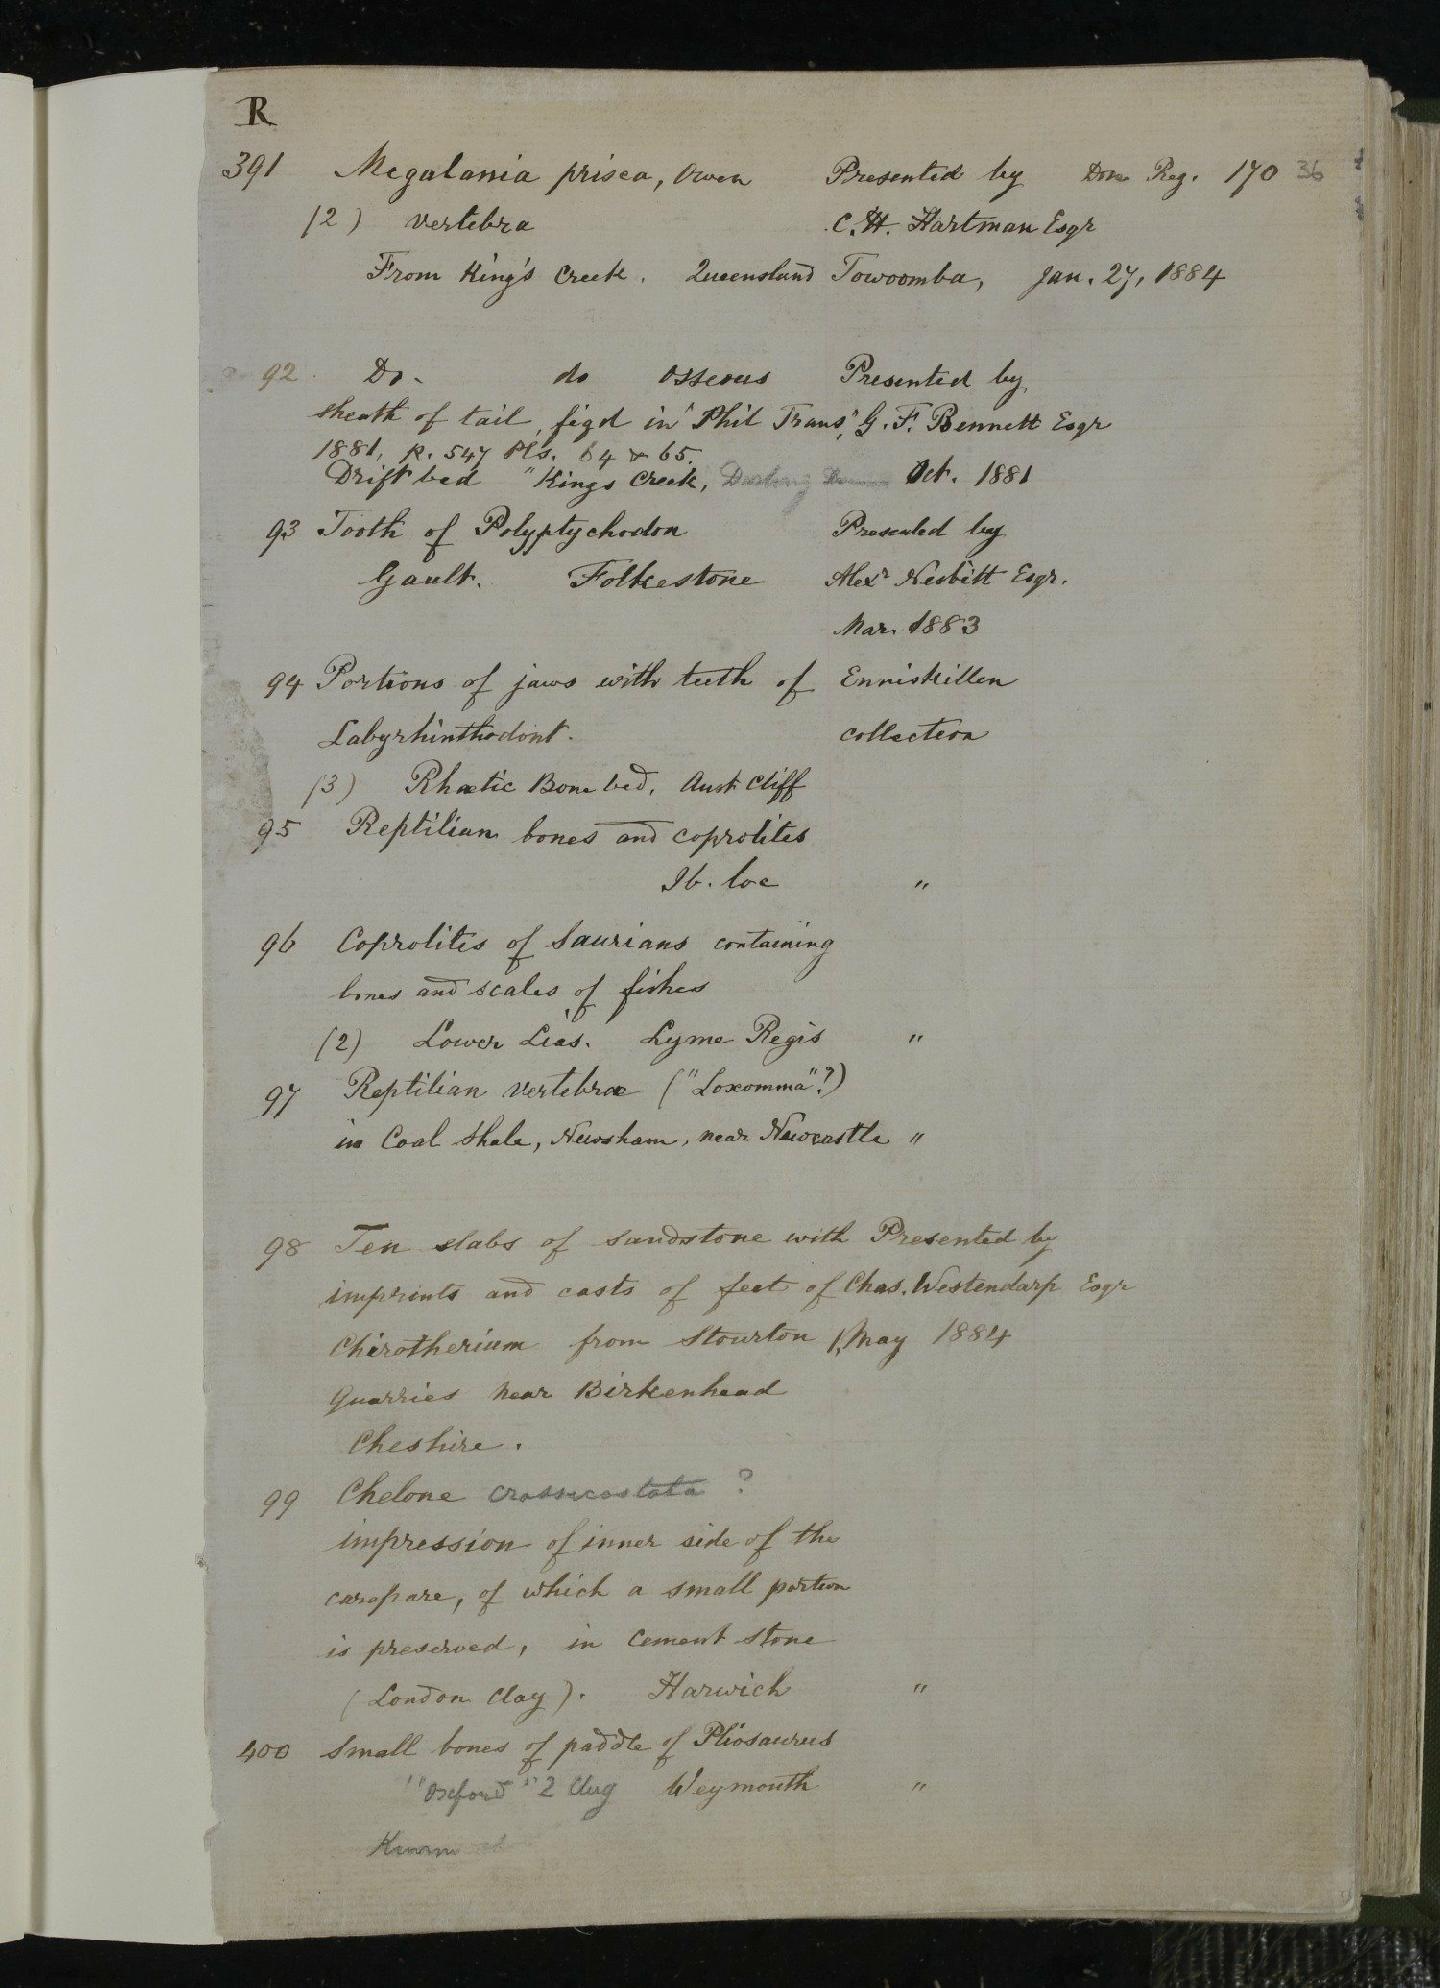 R
36
391 Megalania prisca, Owen Presented by Don Reg. 170
(2) vertebra C. H. Hartman Esqr
From King's Creek. Queensland Towoomba, Jan. 27, 1884
92 Do. do osseous Presented by
sheath of tail, figd in "Phil Trans", G. F. Bennett Esqr
1881, p. 547 Pls. 64 & 65.
Drift bed "Kings Creek, Darling Oct. 1881
93 Tooth of Polyptychodon Presented by
Gault. Folkestone Alexr Nesbitt Esqr.
Mar. 1883
94 Portions of jaws with teeth of Enniskillen
Labyrhinthodont. collection
(3) Rhætic Bone bed, Aust Cliff
95 Reptilian bones and coprolites
Ib. loc "
96 Coprolites of Saurians containing
bones and scales of fishes
(2) Lower Lias. Lyme Regis "
97 Reptilian vertebræ ("Loxomma"?)
in Coal Shale, Newsham, near Newcastle "
98 Ten slabs of sandstone with Presented by
imprints and casts of feet of Chas. Westendarp Esqr
Chirotherium from Stourton May 1884
Quarries near Birkenhead
Cheshire.
99 Chelone crassicostata ?
impression of inner side of the
carapare, of which a small portion
is preserved, in Cement Stone
(London Clay). Harwich "
400 Small bones of paddle of Pliosaurus
"Oxford" ? Clay Weymouth "